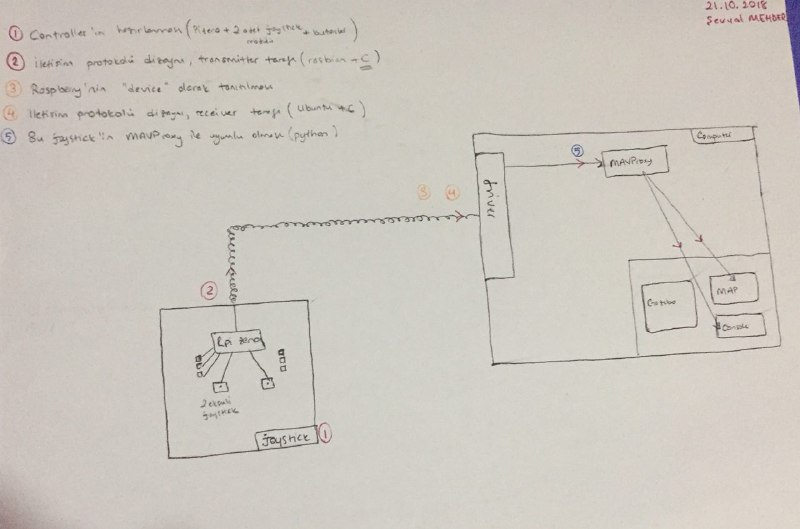 21.10.2018
Şevval MEHDER
① Controller'ın hazırlanması (Pizero + 2 adet joystick modülü + butonlar)
② iletişim protokolü dizaynı, transmitter tarafı (rasbian + C)
③ Raspberry'nin "device" olarak tanıtılması
④ Iletişim protokolü dizaynı, receiver tarafı (Ubuntu + C)
⑤ Bu joystick'in MAVProxy ile uyumlu olması (python)
Computer
⑤
MAVProxy
driver
③ ④
②
MAP
Gazebo
Console
Rpi zero
2 eksenli
joystick
joystick ①